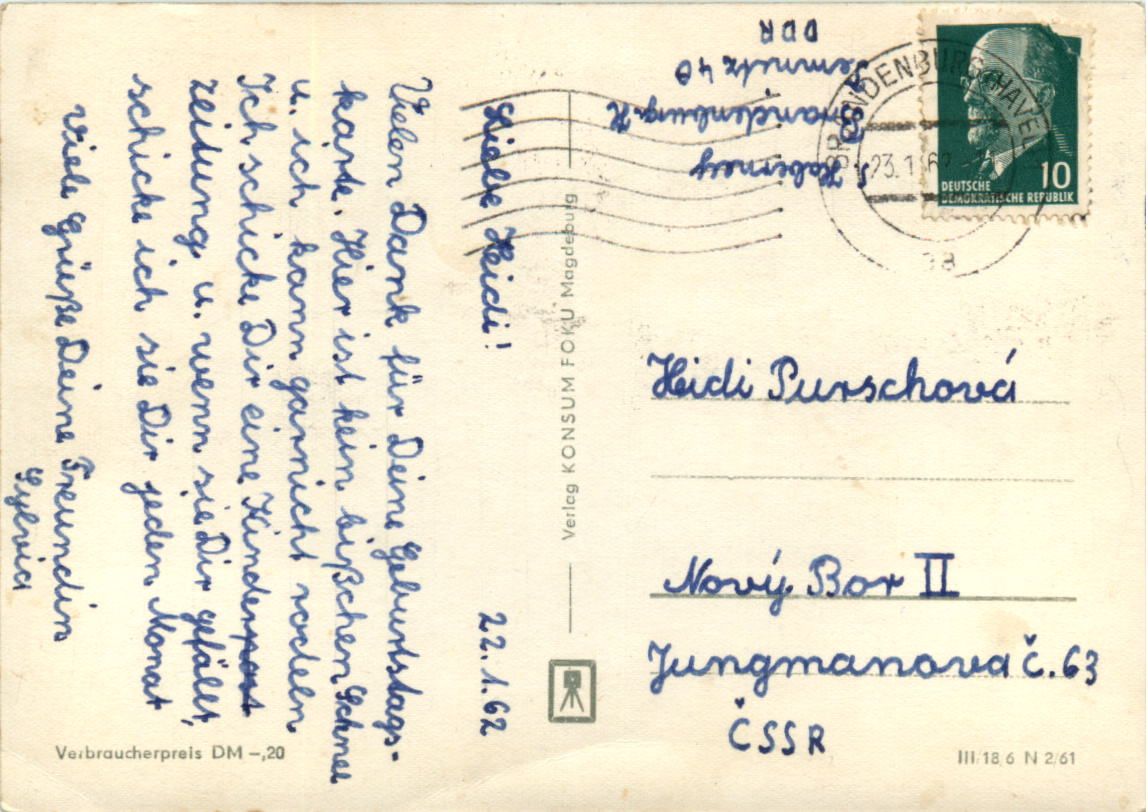 22.1.62
Liebe Heidi!
Vielen Dank für Deine Geburtstags-
karte. Hier ist kein bißchen Schnee
u. ich kann garnicht rodeln.
Ich schicke Dir eine Kinderpost
zeitung u. wenn sie Dir gefällt,
schicke ich sie Dir jeden Monat
Viele Grüße Deine Freundin
Sylvia
Verbraucherpreis DM –,20
Verlag KONSUM FOKU Magdeburg
S. Haberney
Brandenburg-H
40
DDR
BRANDENBURG (HAVEL)
23.1.62
DEUTSCHE
DEMOKRATISCHE REPUBLIK
10
Heidi Purschová
Nový Bor II
Jungmanova č. 63
ČSSR
III/18/6 N 2/61